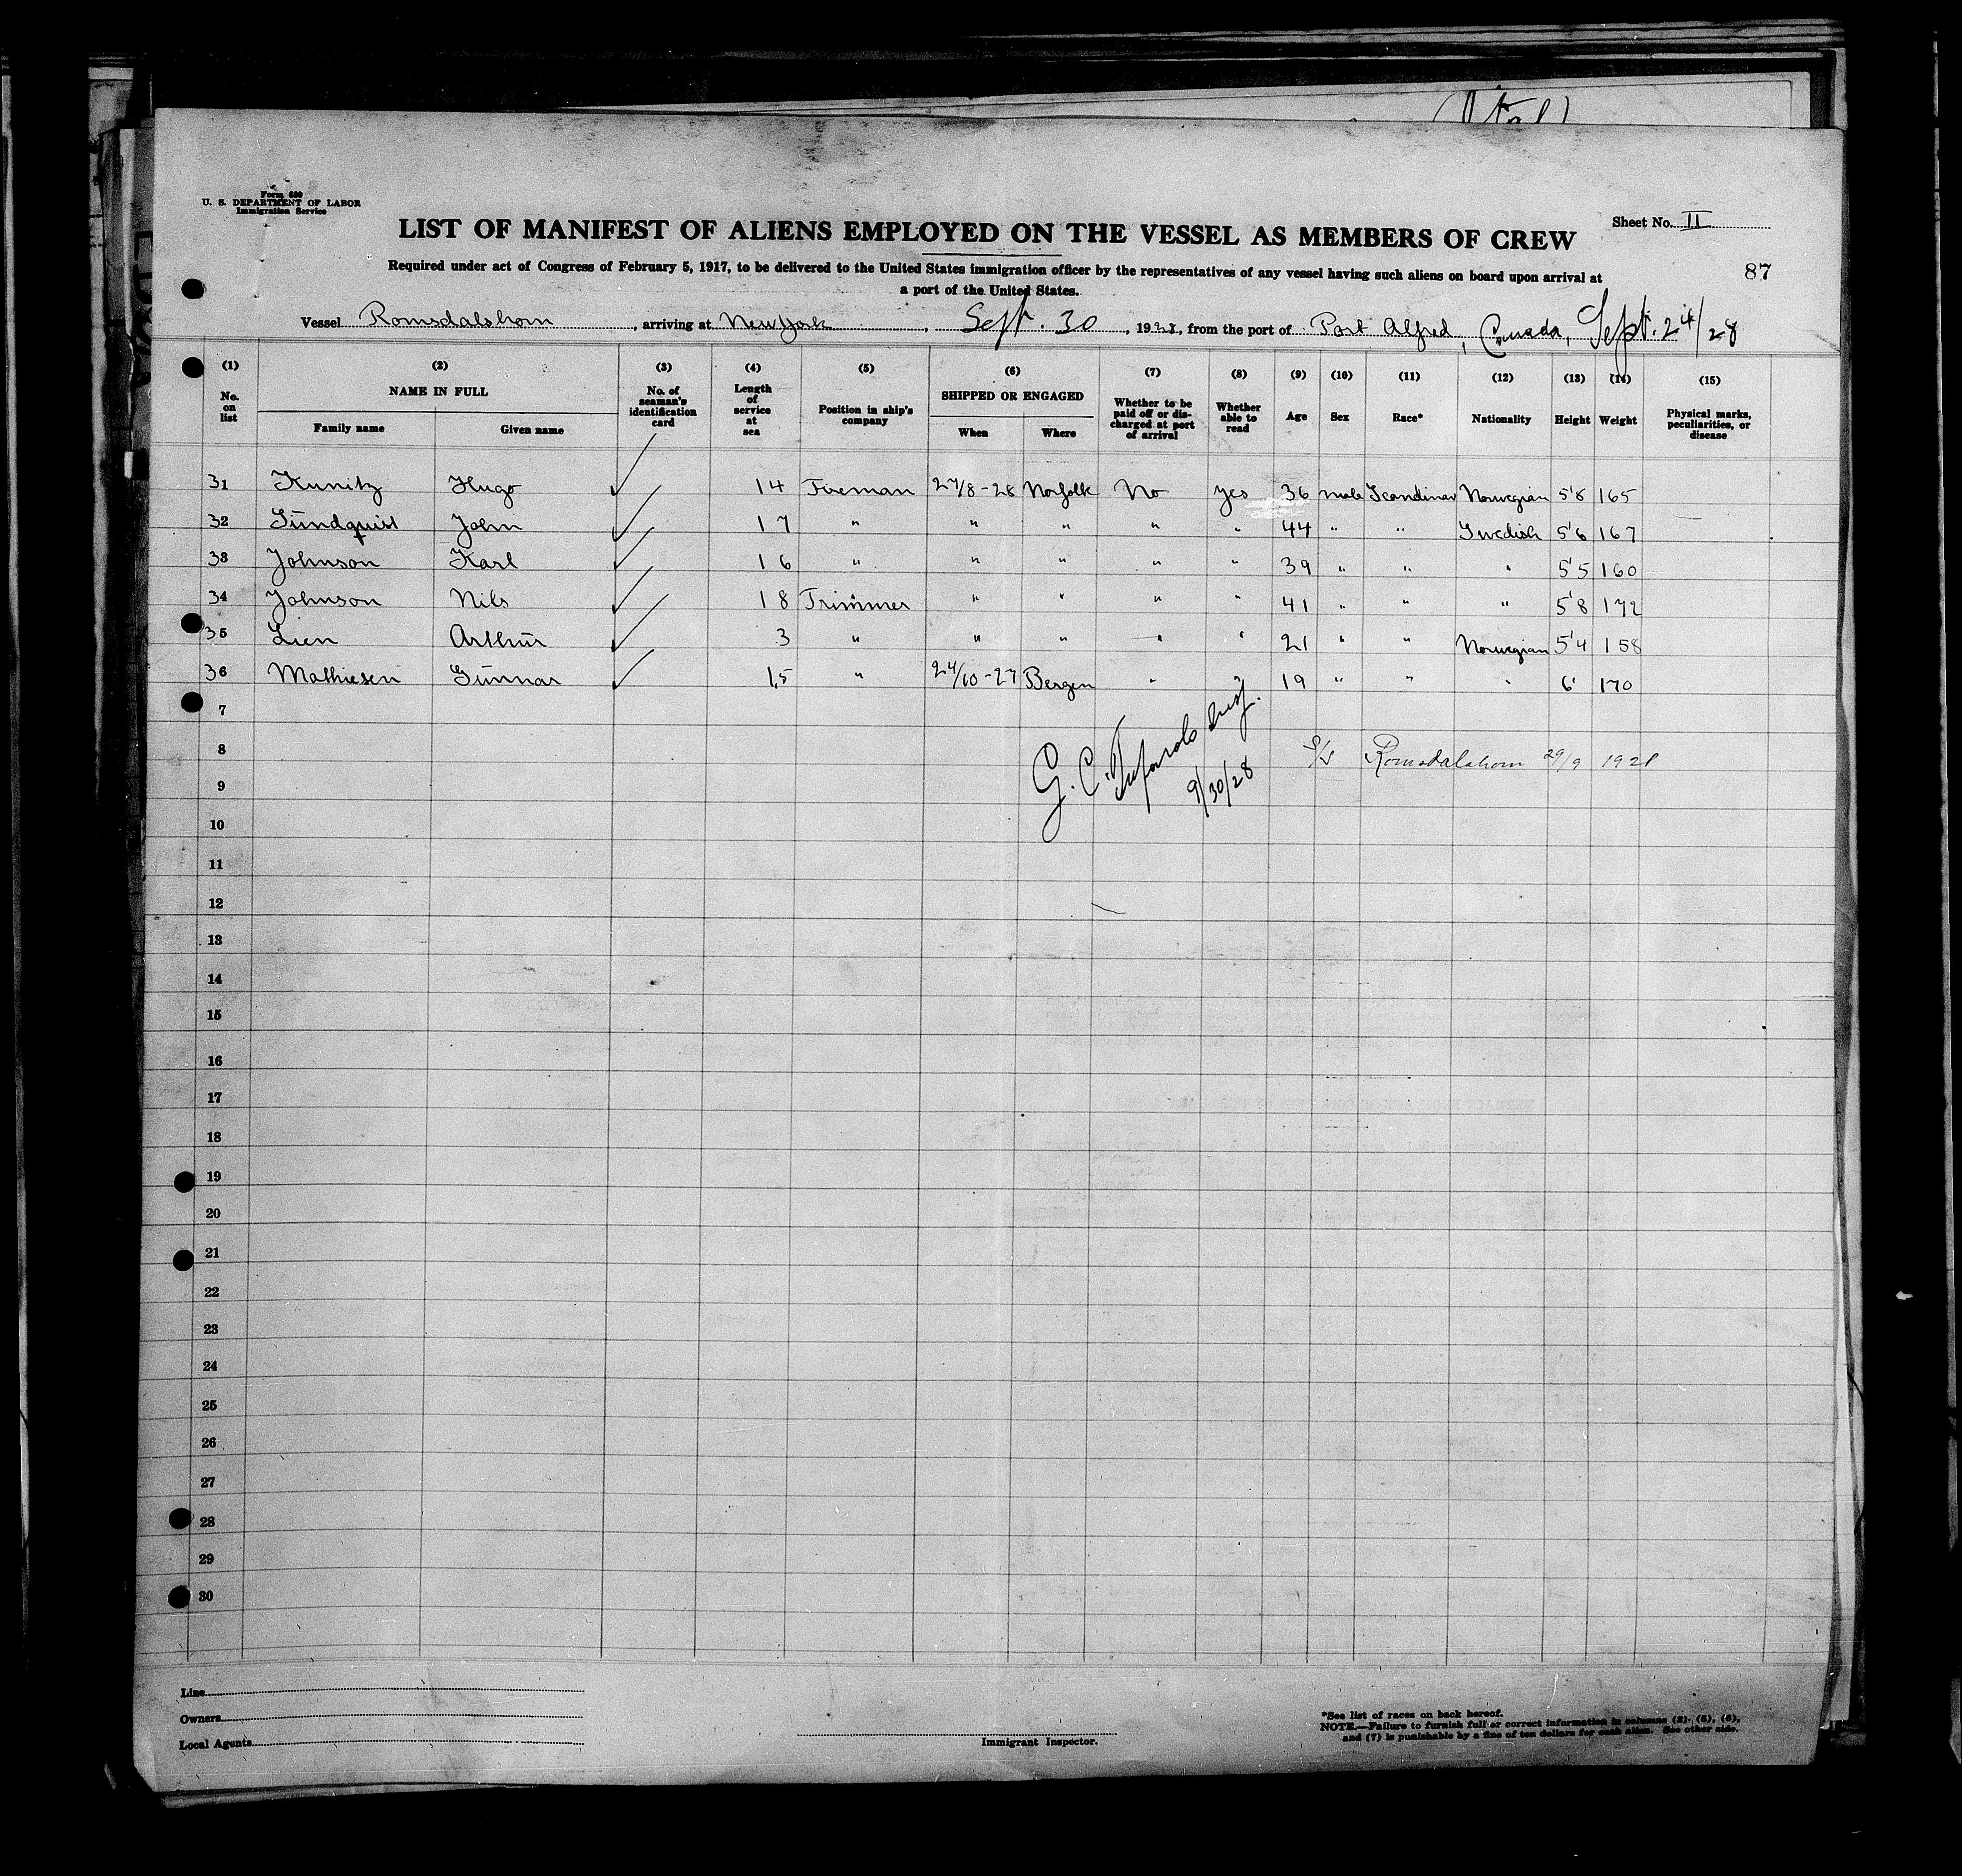 Form 680
U. S. DEPARTMENT OF LABOR
Immigration Service
LIST OF MANIFEST OF ALIENS EMPLOYED ON THE VESSEL AS MEMBERS OF CREW
Sheet No. II
Required under act of Congress of February 5, 1917, to be delivered to the United States immigration officer by the representatives of any vessel having such aliens on board upon arrival at
a port of the United States.
87
Vessel Romsdalshorn, arriving at New York, Sept. 30, 1928, from the port of Port Alfred, Canada, Sept. 24/28
(1) (2) (3) (4) (5) (6) (7) (8) (9) (10) (11) (12) (13) (14) (15)
No. on list NAME IN FULL Family name Given name No. of seaman's identification card Length of service at sea Position in ship's company SHIPPED OR ENGAGED When Where Whether to be paid off or discharged at port of arrival Whether able to read Age Sex Race* Nationality Height Weight Physical marks, peculiarities, or disease
31 Kunitz Hugo 14 Fireman 27/8-28 Norfolk No Yes 36 male Scandinav Norwegian 5'8 165
32 Sundquist John 17 " " " " " 44 " " Swedish 5'6 167
33 Johnson Karl 16 " " " " " 39 " " " 5'5 160
34 Johnson Nils 18 Trimmer " " " " 41 " " " 5'8 172
35 Lien Arthur 3 " " " " " 21 " " Norwegian 5'4 158
36 Mathiesen Gunnar 1,5 " 24/10-27 Bergen " " 19 " " " 6' 170
7
G. C.
9/30/28
8 S/S Romsdalshorn 29/9 1928
9
10
11
12
13
14
15
16
17
18
19
20
21
22
23
24
25
26
27
28
29
30
Line
Owners
Local Agents
Immigrant Inspector.
*See list of races on back hereof.
NOTE.—Failure to furnish full or correct information in columns (2), (5), (6),
and (7) is punishable by a fine of ten dollars for each alien. See other side.